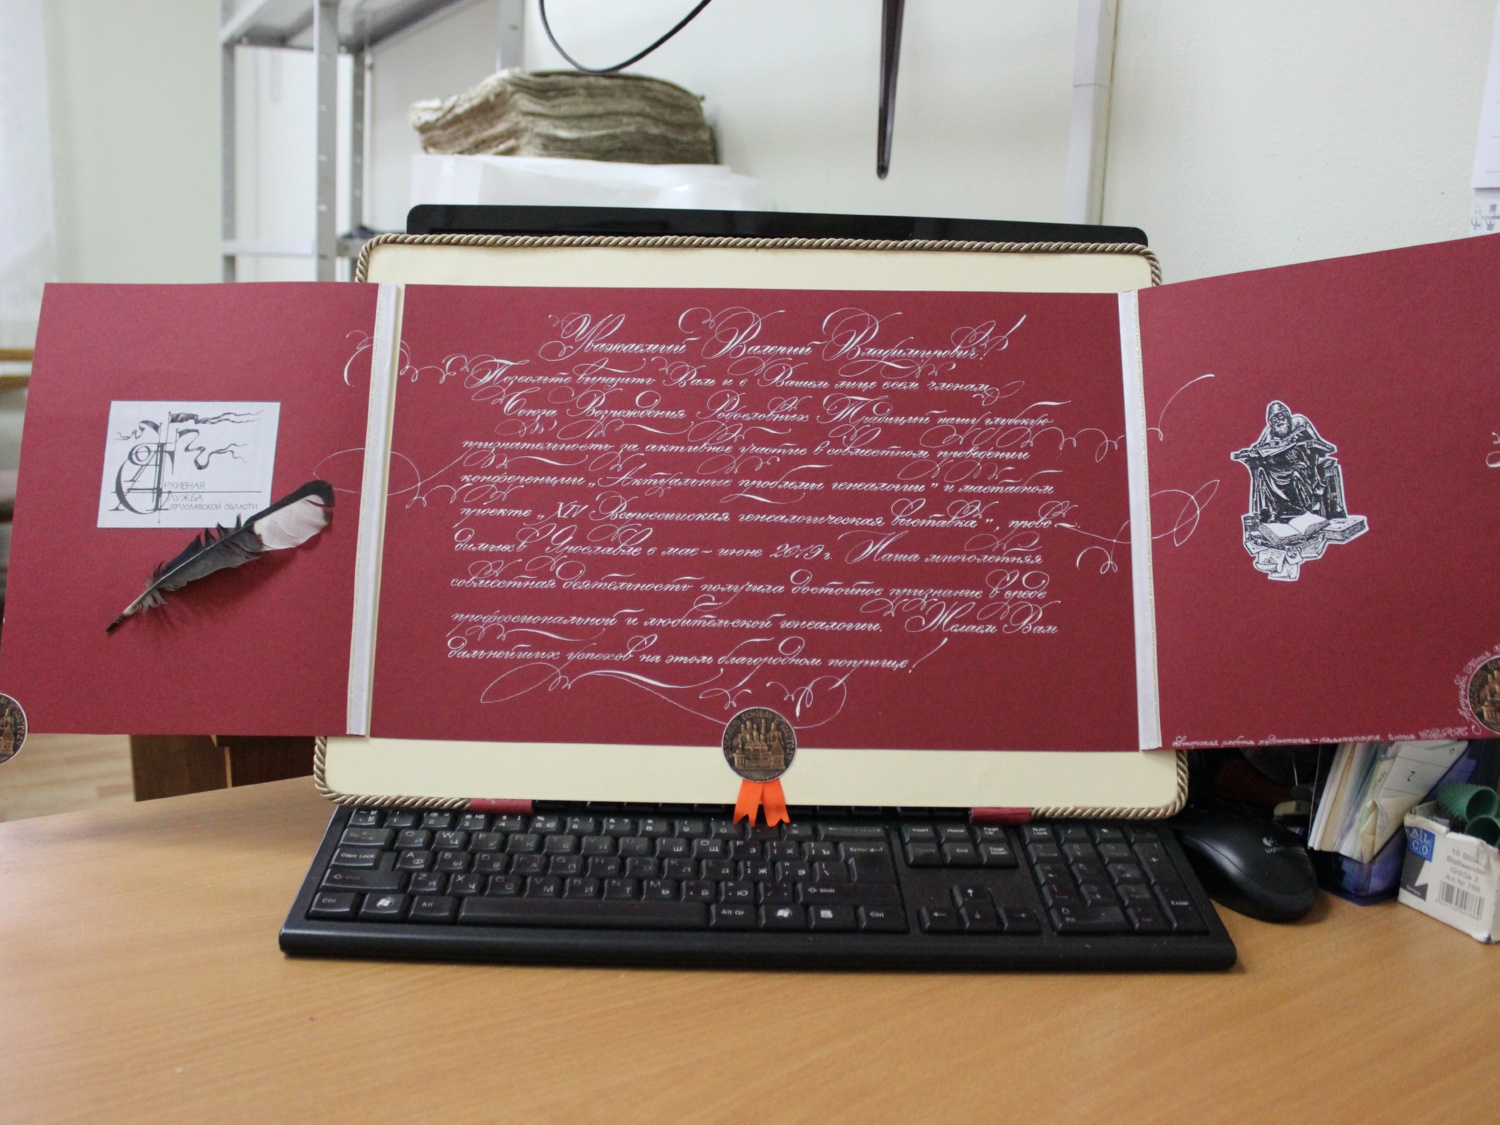 Архивная
Служба
Ярославской области
Уважаемый Валерий Владимирович!
Позвольте выразить Вам и в Вашем лице всем членам
Союза Возрождения Родословных Традиций нашу глубокую
признательность за активное участие в совместном проведении
конференции „Актуальные проблемы генеалогии" и масштабном
проекте „XIV Всероссийская генеалогическая выставка", прово-
димых в Ярославле в мае - июне 2019 г. Наша многолетняя
совместная деятельность получила достойное признание в среде
профессиональной и любительской генеалогии. Желаем Вам
дальнейших успехов на этом благородном поприще!
Caps Lock
Ctrl
Alt
Alt Gr
Ctrl
Shift
Enter
Insert
Home
Page Up
End
Page Down
Num Lock
Enter
ALCO